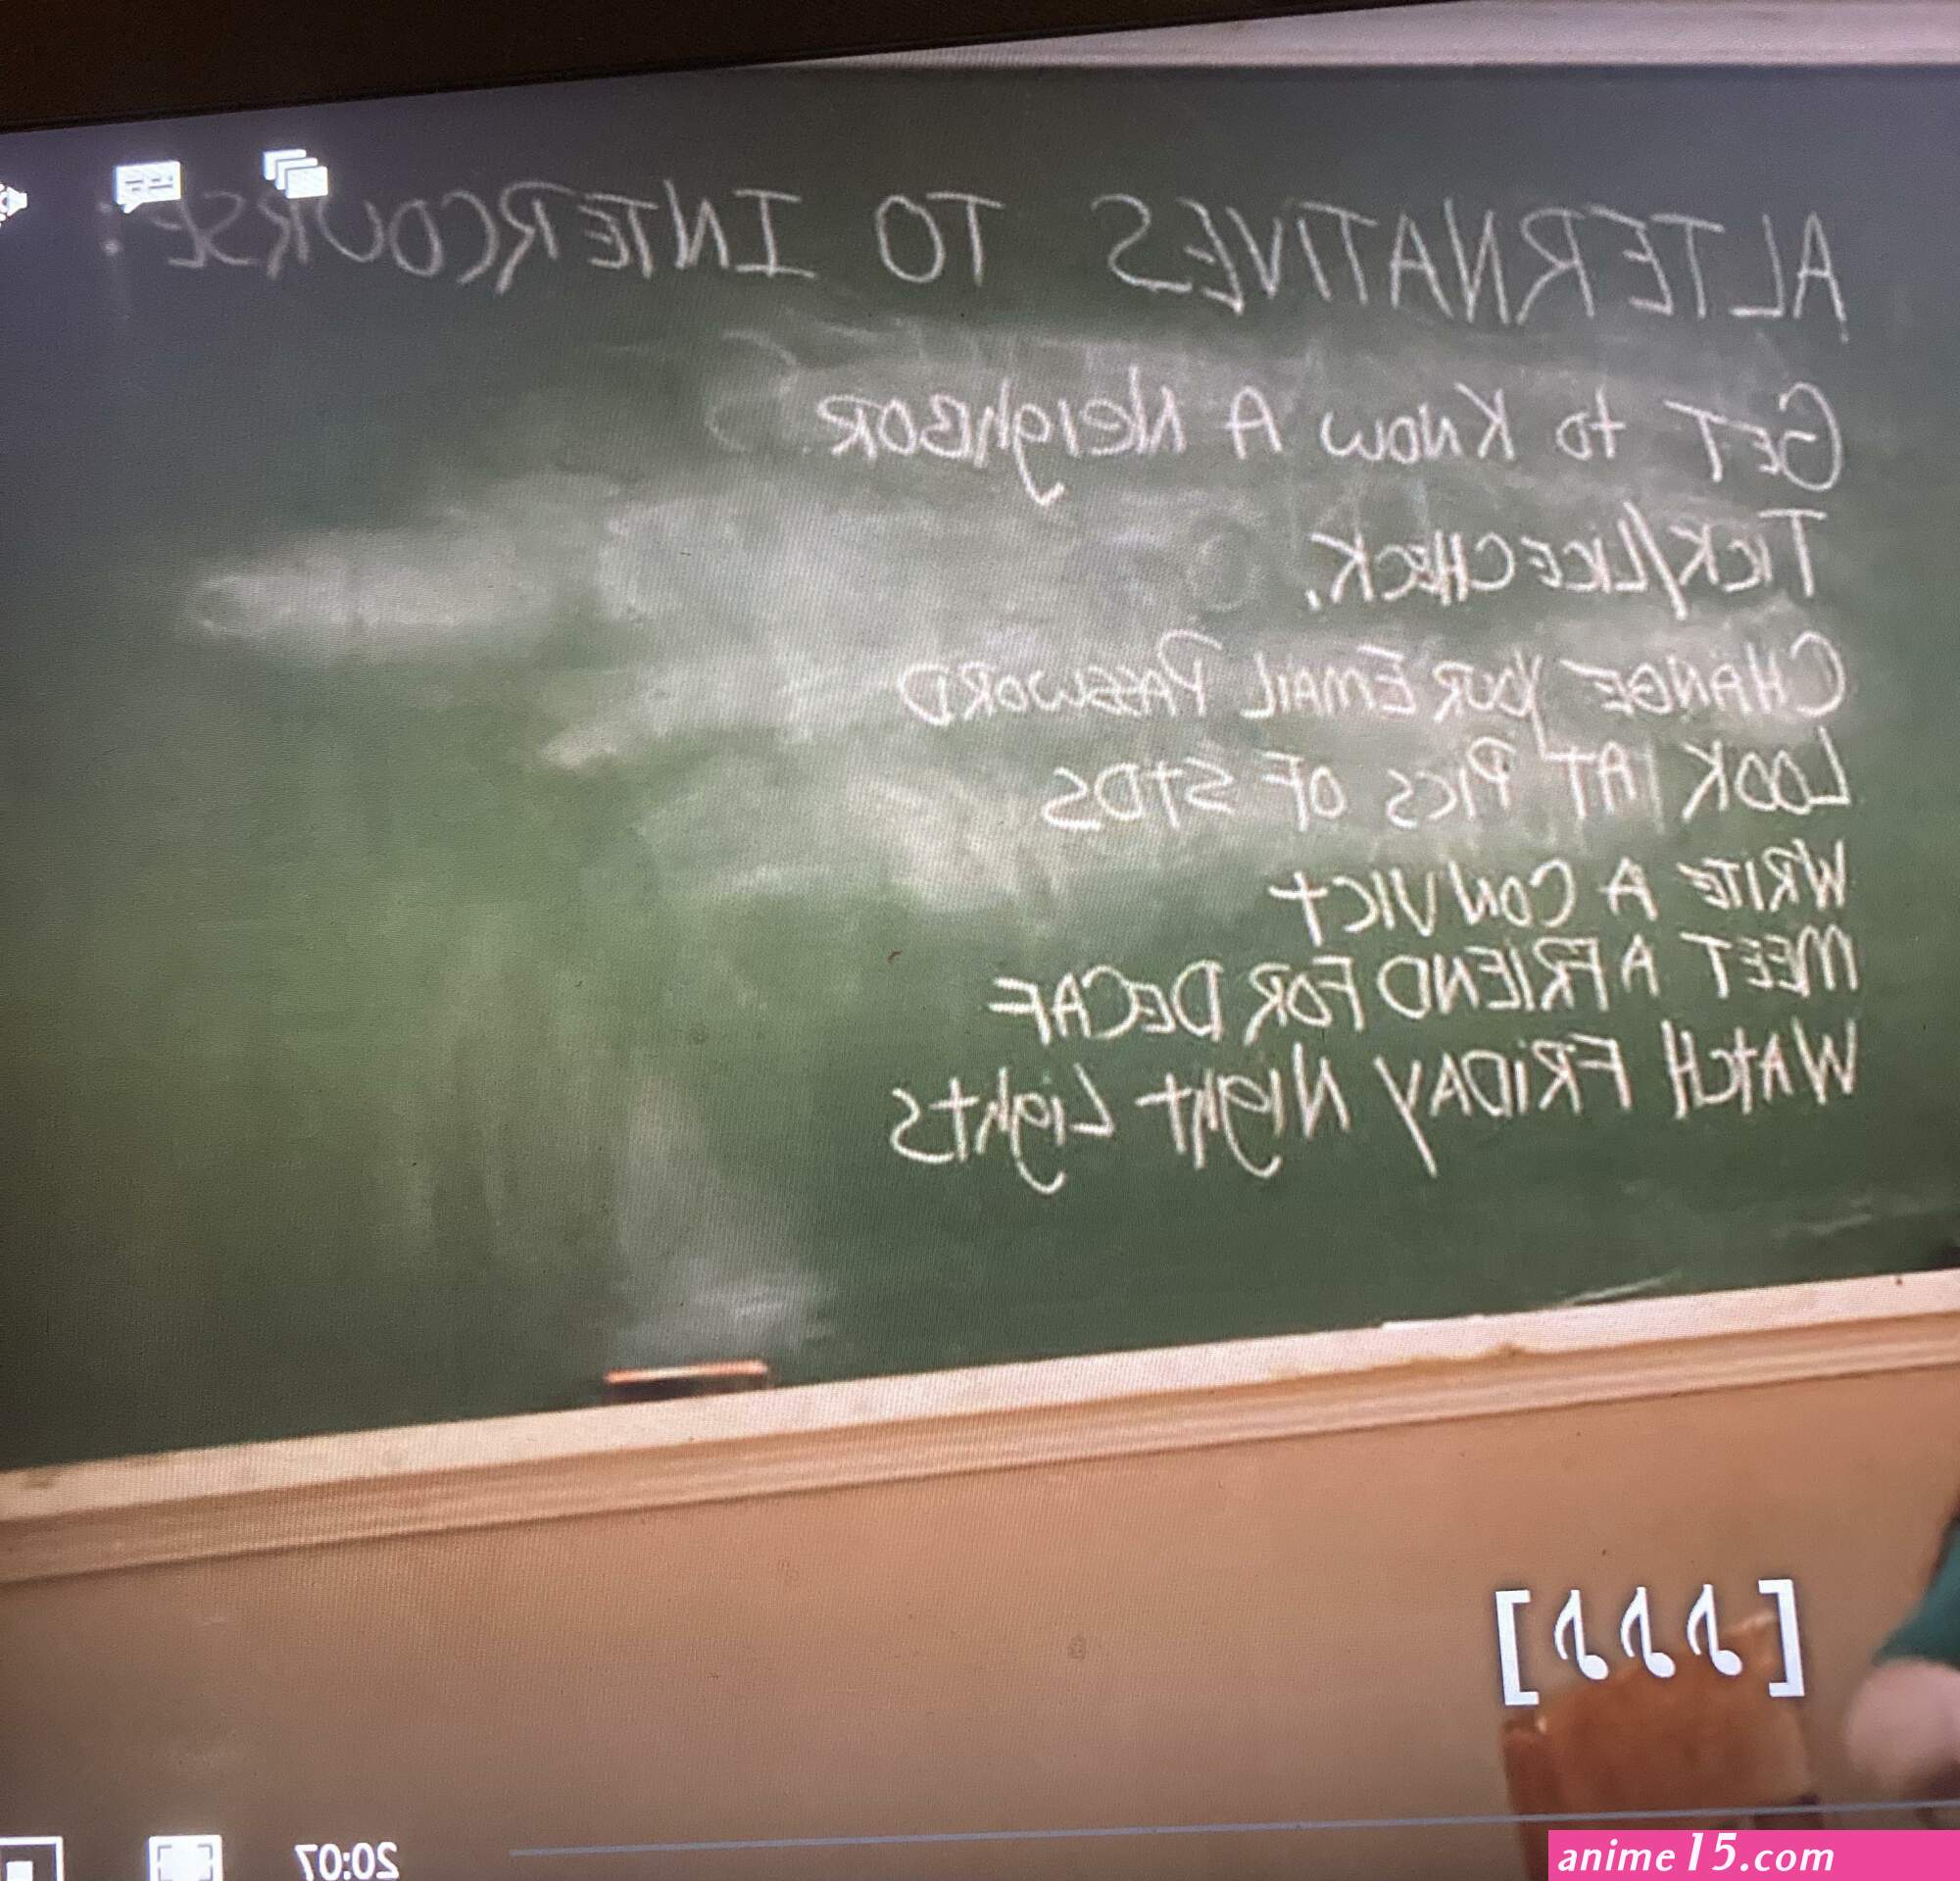 ALTERNATIVES TO INTERCOURSE:
GET to KNOW A NEIGHBOR
TICK/LICE CHECK.
CHANGE YOUR EMAIL PASSWORD
LOOK AT PICS OF STDS
WRITE A CONVICT
MEET A FRIEND FOR DECAF
WATCH FRIDAY NIGHT LIGHTS
[♪♪♪]
20:07
anime15.com